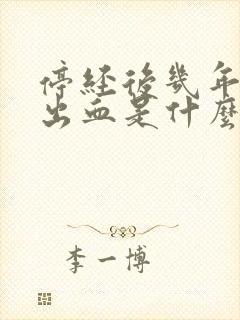 停経後幾年
出血是什麼
李一博